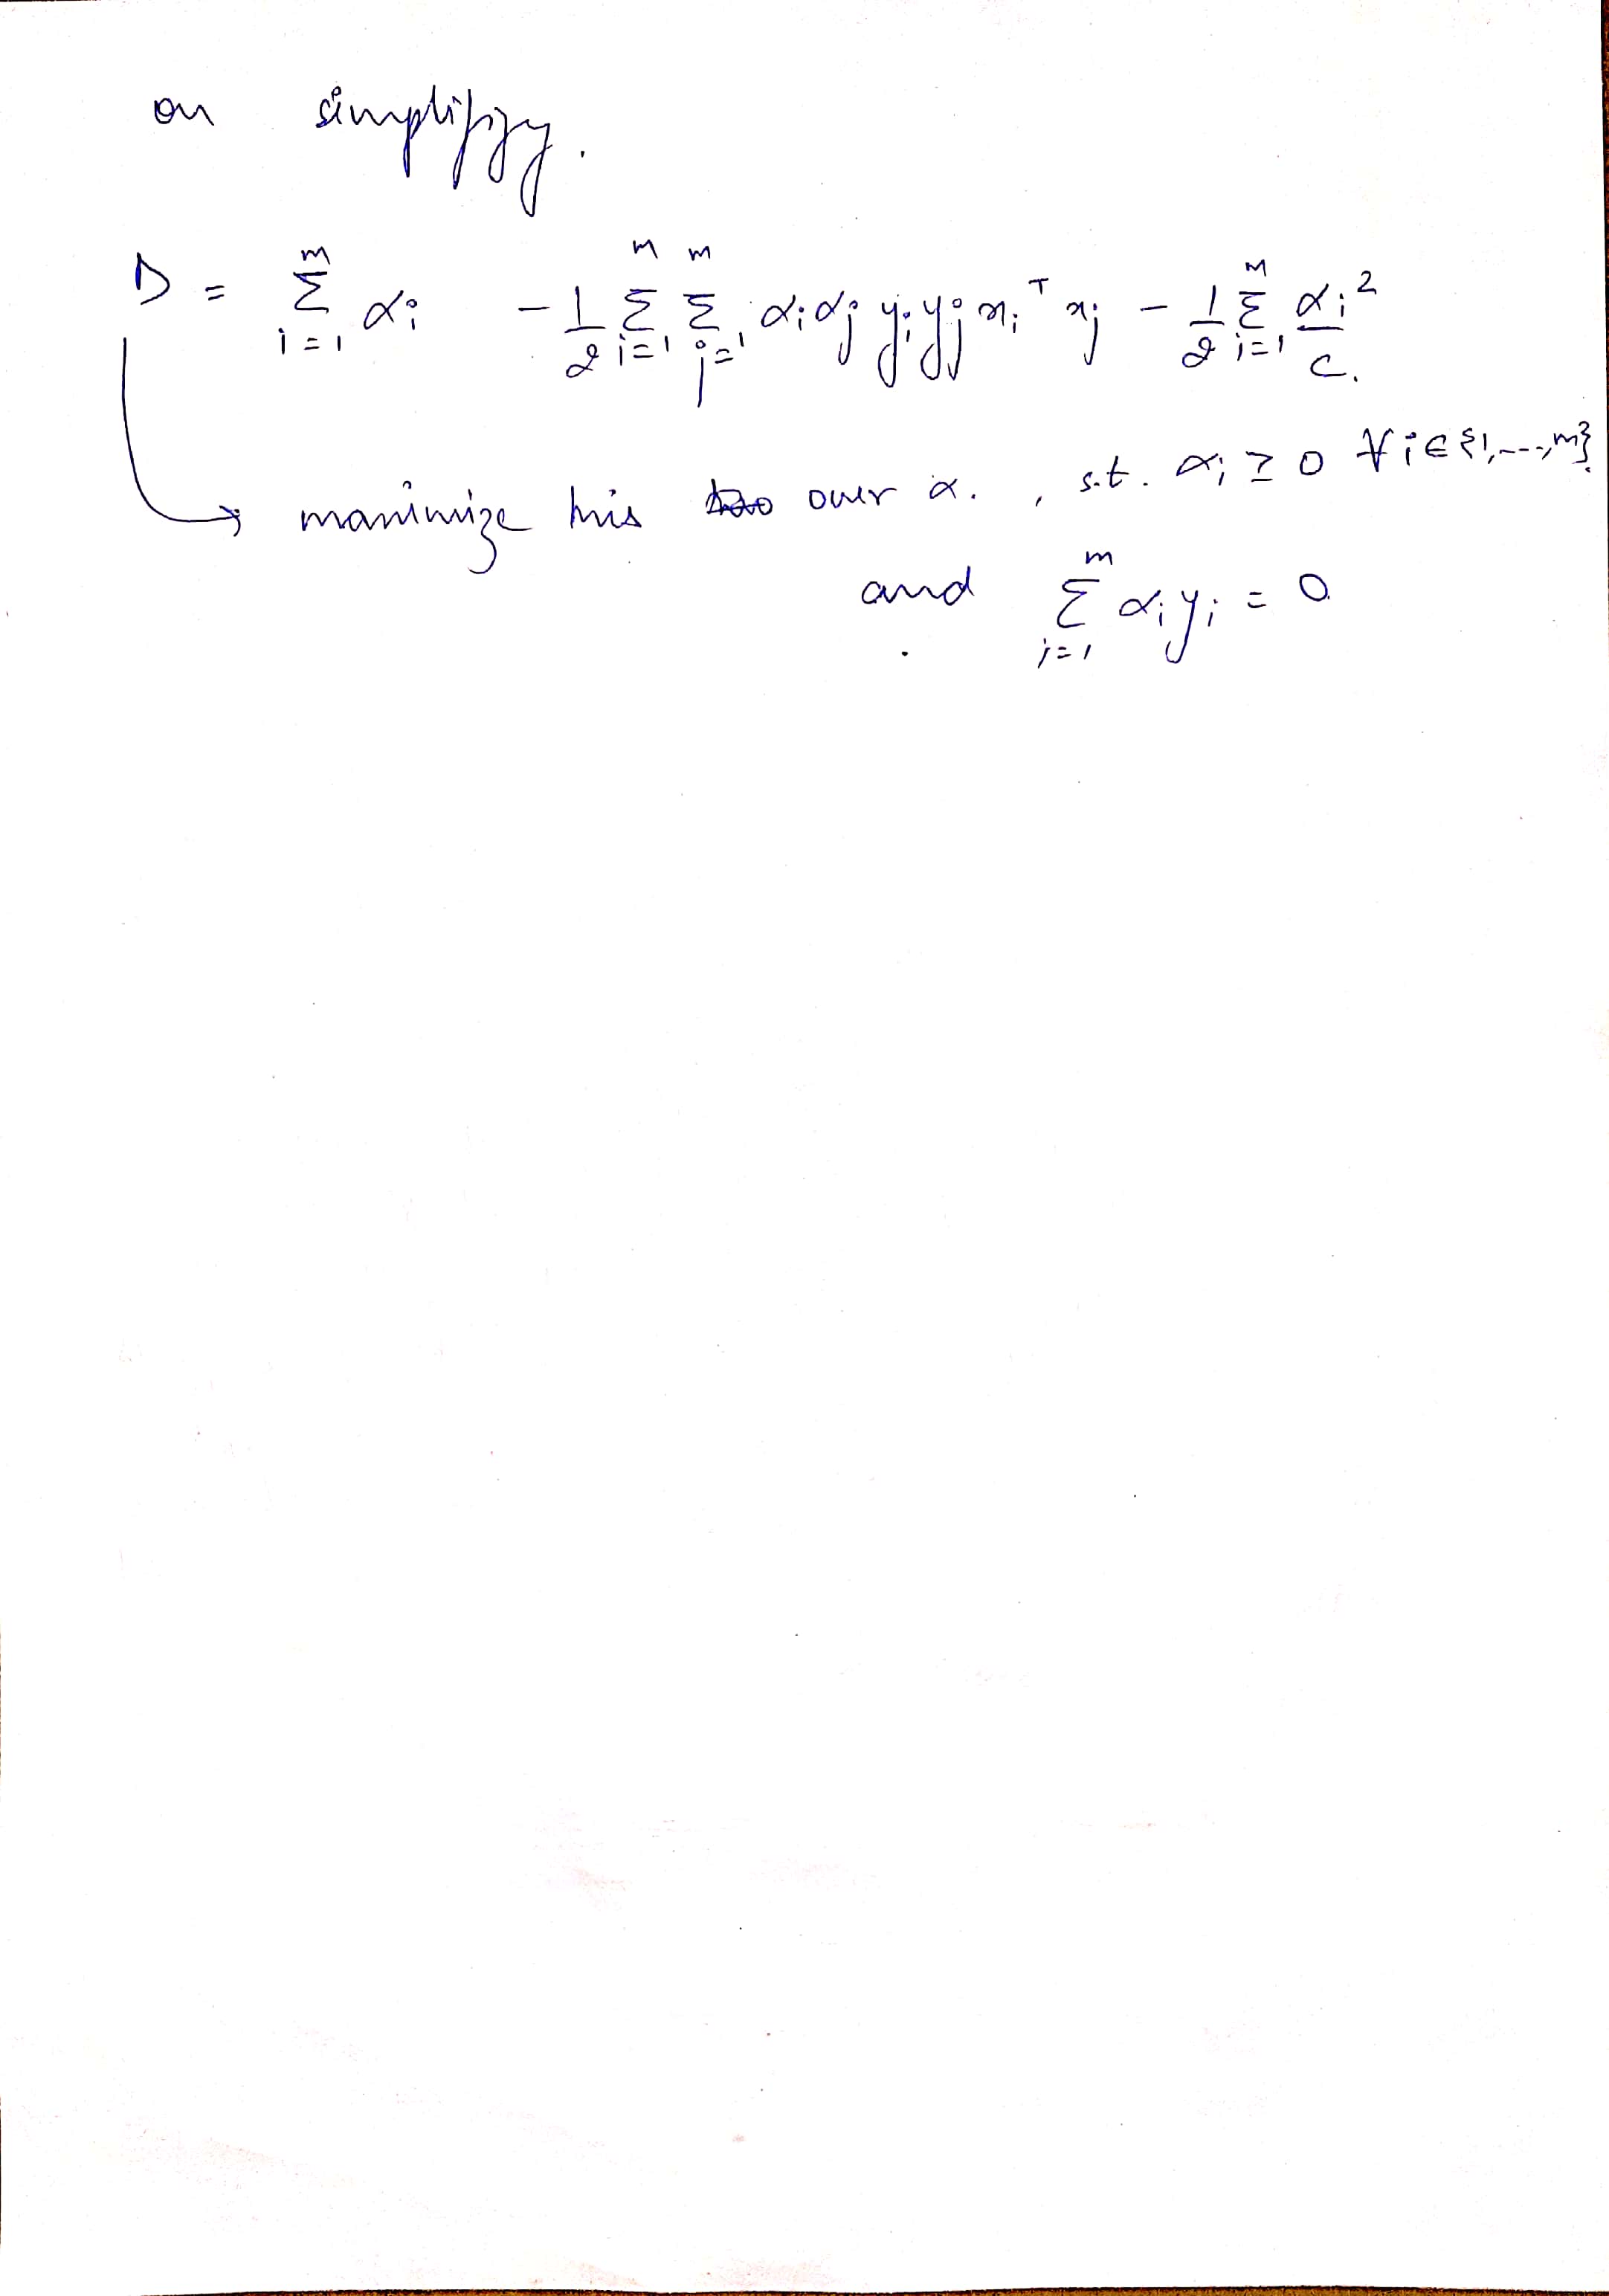 on simplify.
D = Σ_{i=1}^{m} α_i - 1/2 Σ_{i=1}^{m} Σ_{j=1}^{m} α_i α_j y_i y_j x_i^T x_j - 1/2 Σ_{i=1}^{m} α_i^2 / C.
→ maximize this over α. , s.t. α_i ≥ 0 ∀ i ∈ {1,---,m}.
and Σ_{i=1}^{m} α_i y_i = 0